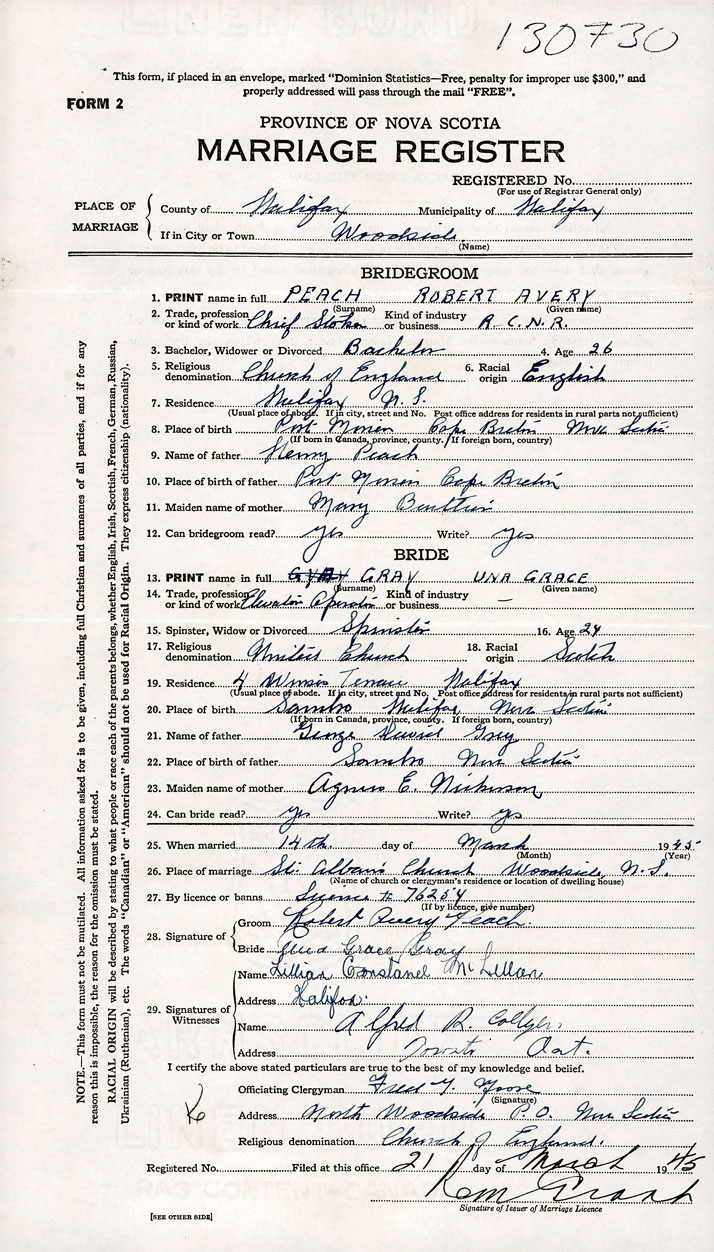 130730
This form, if placed in an envelope, marked "Dominion Statistics—Free, penalty for improper use $300," and
properly addressed will pass through the mail "FREE".
FORM 2
PROVINCE OF NOVA SCOTIA
MARRIAGE REGISTER
REGISTERED No.
(For use of Registrar General only)
PLACE OF MARRIAGE
County of Halifax Municipality of Halifax
If in City or Town Woodside
(Name)
BRIDEGROOM
1. PRINT name in full PEACH ROBERT AVERY
(Surname) (Given name)
2. Trade, profession or kind of work Chief Stoker Kind of industry or business R.C.N.R.
3. Bachelor, Widower or Divorced Bachelor 4. Age 26
5. Religious denomination Church of England 6. Racial origin English
7. Residence Halifax N.S.
(Usual place of abode. If in city, street and No. Post office address for residents in rural parts not sufficient)
8. Place of birth Port Morien Cape Breton Nova Scotia
(If born in Canada, province, county. If foreign born, country)
9. Name of father Henry Peach
10. Place of birth of father Port Morien Cape Breton
11. Maiden name of mother Mary
12. Can bridegroom read? yes Write? yes
BRIDE
13. PRINT name in full GRAY UNA GRACE
(Surname) (Given name)
14. Trade, profession or kind of work Elevator Operator Kind of industry or business —
15. Spinster, Widow or Divorced Spinster 16. Age 24
17. Religious denomination United Church 18. Racial origin Scotch
19. Residence 4 Halifax
(Usual place of abode. If in city, street and No. Post office address for residents in rural parts not sufficient)
20. Place of birth Sambro Halifax Nova Scotia
(If born in Canada, province, county. If foreign born, country)
21. Name of father George David Gray
22. Place of birth of father Sambro Nova Scotia
23. Maiden name of mother Agnes E. Nickerson
24. Can bride read? yes Write? yes
25. When married 14th. day of March 1945
(Month) (Year)
26. Place of marriage St. Alban's Church Woodside, N.S.
(Name of church or clergyman's residence or location of dwelling house)
27. By licence or banns License # 76254
(If by licence, give number)
28. Signature of
Groom Robert Avery Peach
Bride Una Grace Gray
29. Signatures of Witnesses
Name Lillian Constance McLellan
Address Halifax
Name Alfred R. Collyer
Address Toronto Ont.
I certify the above stated particulars are true to the best of my knowledge and belief.
Officiating Clergyman Fred Y.
(Signature)
Address North Woodside P.O. Nova Scotia
Religious denomination Church of England.
Registered No. Filed at this office 21 day of March 1945
Signature of Issuer of Marriage Licence
[SEE OTHER SIDE]
NOTE.—This form must not be mutilated. All information asked for is to be given, including full Christian and surnames of all parties, and if for any
reason this is impossible, the reason for the omission must be stated.
RACIAL ORIGIN will be described by stating to what people or race each of the parents belongs, whether English, Irish, Scottish, French, German, Russian,
Ukrainian (Ruthenian), etc. The words "Canadian" or "American" should not be used for Racial Origin. They express citizenship (nationality).